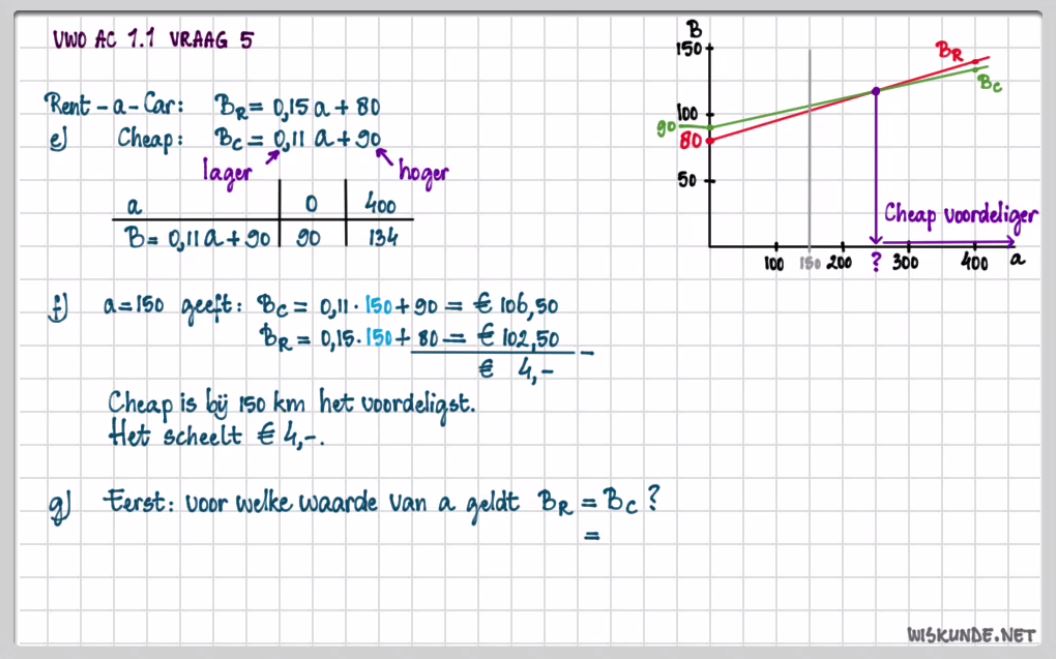 VWO AC 1.1 VRAAG 5
Rent-a-Car: B_R = 0,15 a + 80
e) Cheap: B_C = 0,11 a + 90
lager hoger
a 0 400
B = 0,11 a + 90 90 134
f) a = 150 geeft: B_C = 0,11 · 150 + 90 = € 106,50
B_R = 0,15 · 150 + 80 = € 102,50 -
€ 4,-
Cheap is bij 150 km het voordeligst.
Het scheelt € 4,-.
g) Eerst: voor welke waarde van a geldt B_R = B_C ?
=
B
150
B_R
B_C
100
90
80
50
Cheap voordeliger
100 150 200 ? 300 400 a
WISKUNDE.NET